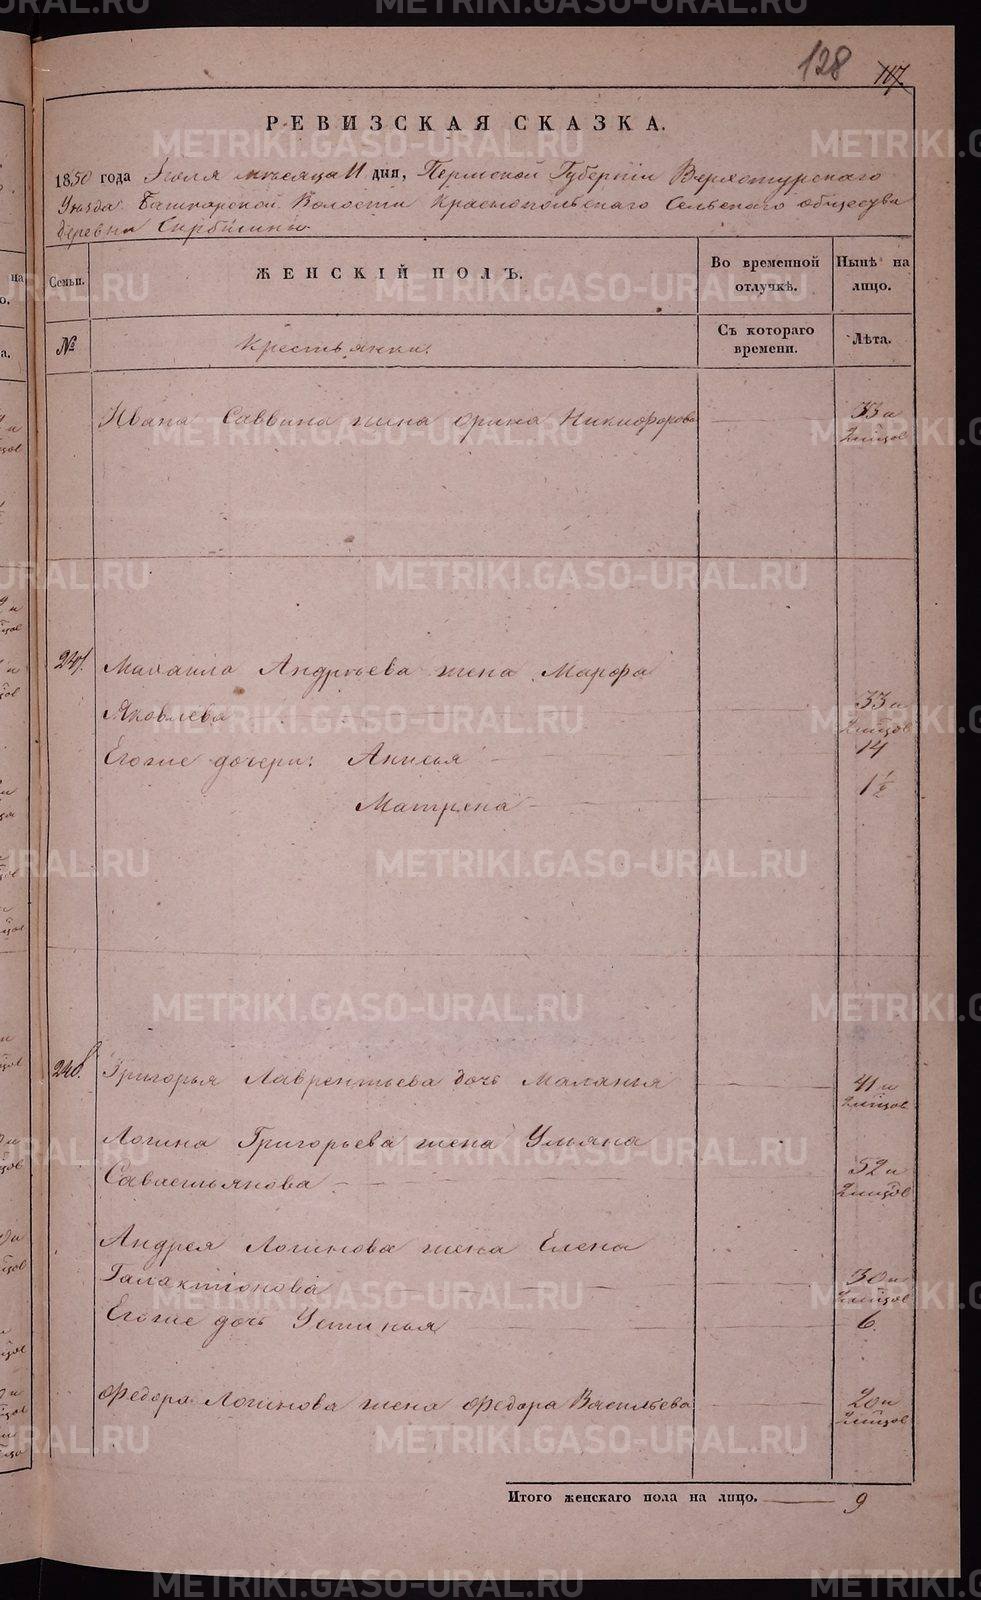 128 117
РЕВИЗСКАЯ СКАЗКА.
1850 года Июля месяца 11 дня, Пермской Губернии Верхотурского
Уезда Башкарской Волости Краснопольского Сельского общества
деревни
Семьи. ЖЕНСКІЙ ПОЛЪ. Во временной отлучкѣ. Нынѣ на лицо.
№ Крестьянки. Съ котораго времени. Лѣта.
Ивана Саввина жена Орина Никифорова 33 и
2 мѣсцов
247. Михаила Андреева жена Марфа
Яковлева 33 и
2 мѣсцов
Егоже дочери: Анисья 14
Матрена 1½
248. Григорья Лаврентьева дочь Маланья 41 и
2 мѣсцов
Логина Григорьева жена Ульяна
Савастьянова 52 и
2 мѣсцов
Андрея Логинова жена Елена
Галактионова 30 и
2 мѣсцов
Егоже дочь Устинья 6.
Федора Логинова жена Федора Васильева 20 и
2 мѣсцов
Итого женскаго пола на лицо. 9
METRIKI.GASO-URAL.RU